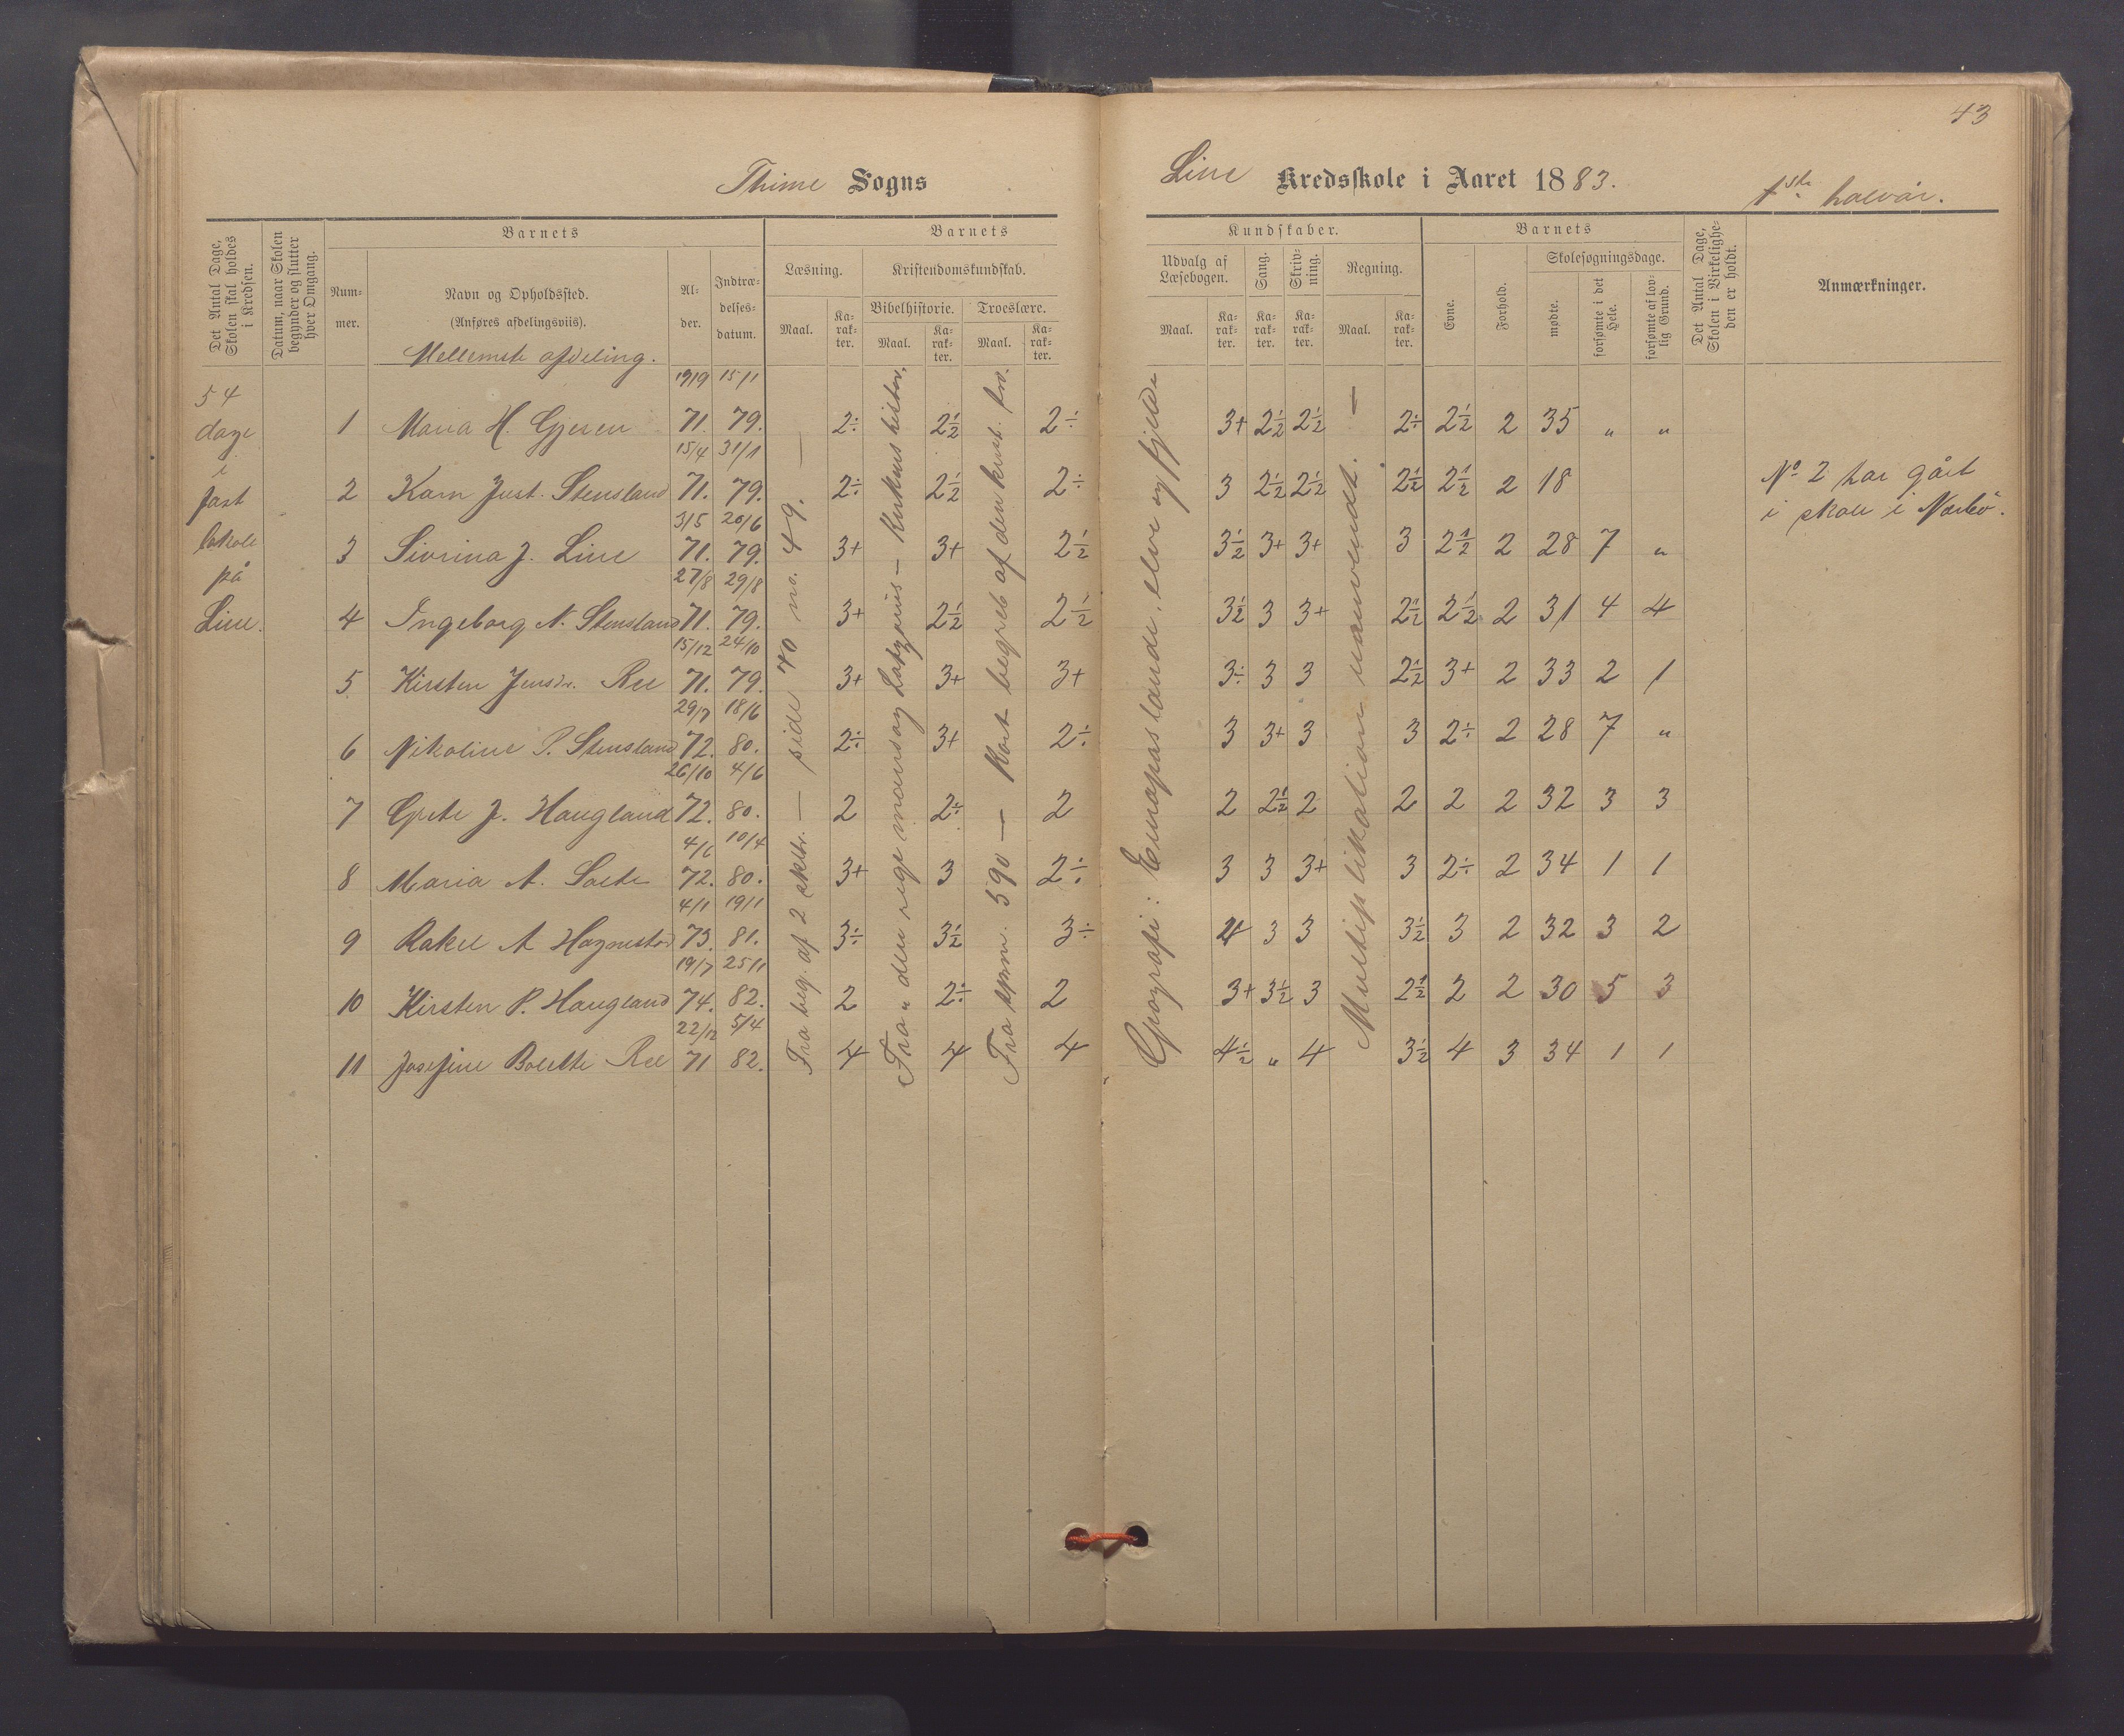 43
Thime Sogns
Line Kredsskole i Aaret 1883.
1ste halvår.
Det Antal Dage, Skolen skal holdes i Kredsen.
Datum, naar Skolen begynder og slutter hver Omgang.
Barnets
Barnets
Kundskaber.
Barnets
Det Antal Dage, Skolen i Virkeligheden er holdt.
Anmærkninger.
Nummer.
Navn og Opholdssted.
(Anføres afdelingsviis).
Alder.
Indtrædelsesdatum.
Læsning.
Kristendomskundskab.
Udvalg af Læsebogen.
Sang.
Skrivning.
Regning.
Evne.
Forhold.
Skolesøgningsdage.
Bibelhistorie.
Troeslære.
Maal.
Karakter.
Maal.
Karakter.
Maal.
Karakter.
Maal.
Karakter.
Karakter.
Karakter.
Maal.
Karakter.
mødte.
forsømte i det Hele.
forsømte af lovlig Grund.
Mellemste afdeling.
54
dage
i
fast
lokale
på
Line.
19/9 15/11
1 Maria H. Gjeren 71. 79. 2÷ 2½ 2÷ 3+ 2½ 2½ 2÷ 2½ 2 35 " "
15/4 31/1
2 Karn Just. Stensland 71. 79. 2÷ 2½ 2÷ 3 2½ 2½ 2½ 2½ 2 18
No 2 har gået
i skole i Nærbö.
3/5 20/6
3 Sivrina J. Line 71. 79. 3+ 3+ 2½ 3½ 3+ 3+ 3 2½ 2 28 7 "
27/8 29/8
4 Ingeborg N. Stensland 71. 79. 3+ 2½ 2½ 3½ 3 3+ 2½ 2½ 2 31 4 4
15/12 24/10
5. Kirsten Jensdr. Ree 71. 79. 3+ 3+ 3+ 3÷ 3 3 2½ 3+ 2 33 2 1
29/7 18/6
6 Nikoline P. Stensland 72. 80. 2÷ 3+ 2÷ 3 3+ 3 3 2÷ 2 28 7 "
26/10 4/6
7 Grete J. Haugland 72. 80. 2 2÷ 2 2 2½ 2 2 2 2 32 3 3
4/6 10/4
8 Maria A. Sæte 72. 80. 3+ 3 2÷ 3 3 3+ 3 2÷ 2 34 1 1
4/1 19/1
9 Rakel A Hognestad 73. 81. 3÷ 3½ 3÷ 4 3 3 3½ 3 2 32 3 2
19/7 25/11
10 Kirsten P. Haugland 74. 82. 2 2÷ 2 3+ 3½ 3 2½ 2 2 30 5 3
22/12 5/4
11 Josefine Bolette Ree 71 82. 4 4 4 4½ " 4 3½ 4 3 34 1 1
Fra beg. af 2 skltr. — side 70 no. 49. —
Fra "den rige mand og Lazarus — Kirkens histor.
Fra spm. 590 — Kort begreb af den krist. tro.
Geografi: Europas lande, elve og fjelde
Multiplikation uanvendt. —